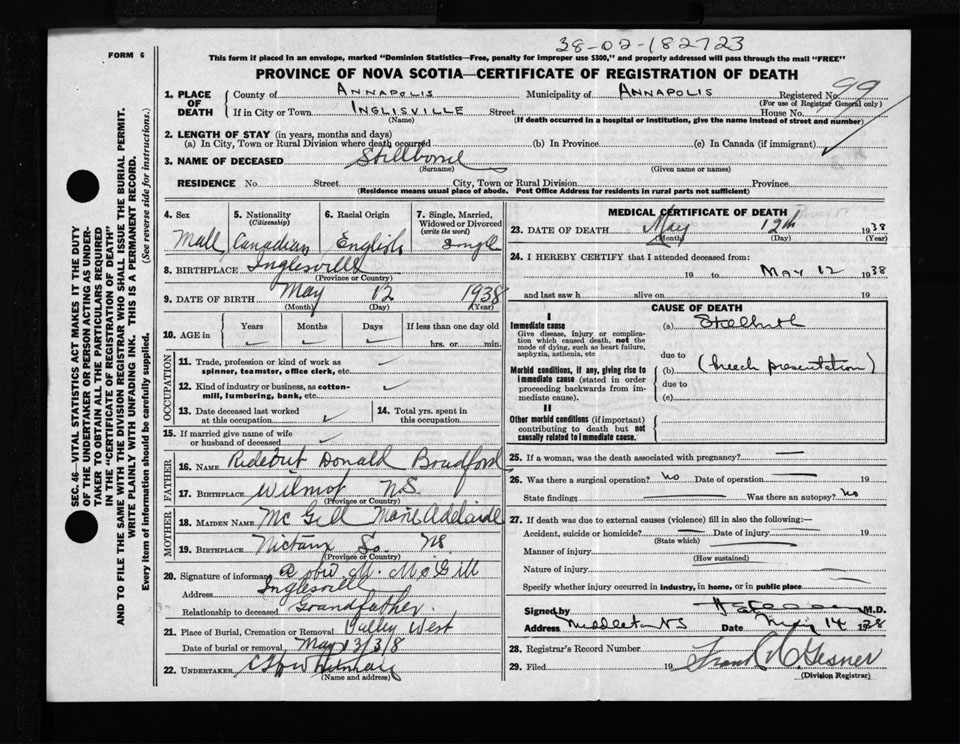 38-02-182723
FORM 6
This form if placed in an envelope, marked "Dominion Statistics—Free, penalty for improper use $300," and properly addressed will pass through the mail "FREE"
PROVINCE OF NOVA SCOTIA—CERTIFICATE OF REGISTRATION OF DEATH
1. PLACE OF DEATH County of ANNAPOLIS Municipality of ANNAPOLIS Registered No. 99
(For use of Registrar General only)
If in City or Town INGLISVILLE Street House No.
(Name) (If death occurred in a hospital or institution, give the name instead of street and number)
2. LENGTH OF STAY (in years, months and days)
(a) In City, Town or Rural Division where death occurred (b) In Province (c) In Canada (if immigrant)
3. NAME OF DECEASED Stillborn
(Surname) (Given name or names)
RESIDENCE No. Street City, Town or Rural Division Province
(Residence means usual place of abode. Post Office Address for residents in rural parts not sufficient)
SEC. 46—VITAL STATISTICS ACT MAKES IT THE DUTY
OF THE UNDERTAKER OR PERSON ACTING AS UNDER-
TAKER TO OBTAIN ALL THE PARTICULARS REQUIRED
IN THE "CERTIFICATE OF REGISTRATION OF DEATH"
AND TO FILE THE SAME WITH THE DIVISION REGISTRAR WHO SHALL ISSUE THE BURIAL PERMIT.
WRITE PLAINLY WITH UNFADING INK. THIS IS A PERMANENT RECORD.
Every item of information should be carefully supplied. (See reverse side for instructions.)
4. Sex 5. Nationality 6. Racial Origin 7. Single, Married,
(Citizenship) Widowed or Divorced
(write the word)
Male Canadian English Single
8. BIRTHPLACE Inglesville
(Province or Country)
9. DATE OF BIRTH May 12 1938
(Month) (Day) (Year)
10. AGE in Years Months Days If less than one day old
hrs. or min.
OCCUPATION
11. Trade, profession or kind of work as
spinner, teamster, office clerk, etc.
12. Kind of industry or business, as cotton-
mill, lumbering, bank, etc.
13. Date deceased last worked 14. Total yrs. spent in
at this occupation this occupation
15. If married give name of wife
or husband of deceased
FATHER
16. NAME Rideout Donald Bradford
17. BIRTHPLACE Wilmot N.S.
(Province or Country)
MOTHER
18. MAIDEN NAME McGill Marie Adelaide
19. BIRTHPLACE Nictaux So. NS
(Province or Country)
20. Signature of informant M. McGill
Address Inglesville
Relationship to deceased Grandfather.
21. Place of Burial, Cremation or Removal Valley West
Date of burial or removal May 13/3/8
22. UNDERTAKER Whitman
(Name and address)
MEDICAL CERTIFICATE OF DEATH
23. DATE OF DEATH May 12th 1938
(Month) (Day) (Year)
24. I HEREBY CERTIFY that I attended deceased from:
19 to MAY 12 1938
and last saw h alive on 19
CAUSE OF DEATH
I
Immediate cause (a) Stillbirth
Give disease, injury or complica-
tion which caused death, not the
mode of dying, such as heart failure,
asphyxia, asthenia, etc due to
Morbid conditions, if any, giving rise to (b) (breech presentation)
immediate cause (stated in order due to
proceeding backwards from im-
mediate cause). (c)
II
Other morbid conditions (if important)
contributing to death but not
causally related to immediate cause.
25. If a woman, was the death associated with pregnancy?
26. Was there a surgical operation? No Date of operation 19
State findings Was there an autopsy? No
27. If death was due to external causes (violence) fill in also the following:—
Accident, suicide or homicide? Date of injury 19
(State which)
Manner of injury
(How sustained)
Nature of injury
Specify whether injury occurred in industry, in home, or in public place
Signed by M.D.
Address Middleton NS Date May 14 1938
28. Registrar's Record Number
29. Filed 19 Frank Gesner
(Division Registrar)